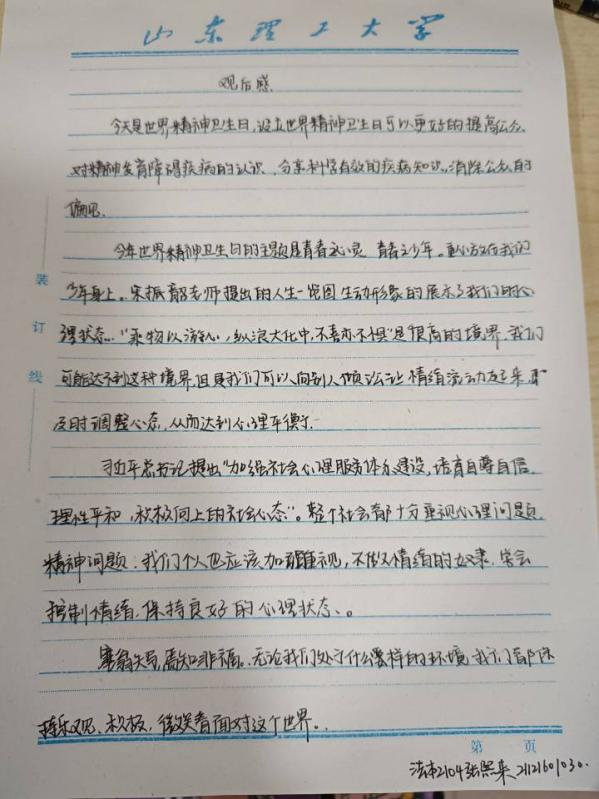 山东理工大学
观后感
今天是世界精神卫生日,设立世界精神卫生日可以更好的提高公众
对精神发育障碍疾病的认识,分享科学有效的疾病知识,消除公众的
偏见.
今年世界精神卫生日的主题是青春之心灵 青春之少年。重心放在我们
少年身上。宋振韶老师提出的人生一览图生动形象的展示了我们的心
理状态.."乘物以游心,纵浪大化中,不喜亦不惧"是很高的境界,我们
可能达不到这种境界但是我们可以向别人倾诉让情绪流动起来,
及时调整心态,从而达到心理平衡.
习近平总书记提出"加强社会心理服务体系建设,培育自尊自信、
理性平和、积极向上的社会心态"。整个社会都十分重视心理问题,
精神问题.我们个人也应该加重视,不做情绪的奴隶,学会
控制情绪,保持良好的心理状态、。
塞翁失马,焉知非福。.无论我们处于什么样的环境,我们都应保
持乐观、积极,微笑着面对这个世界..
装
订
线
第 页
法本2104张熙来 2112601030.